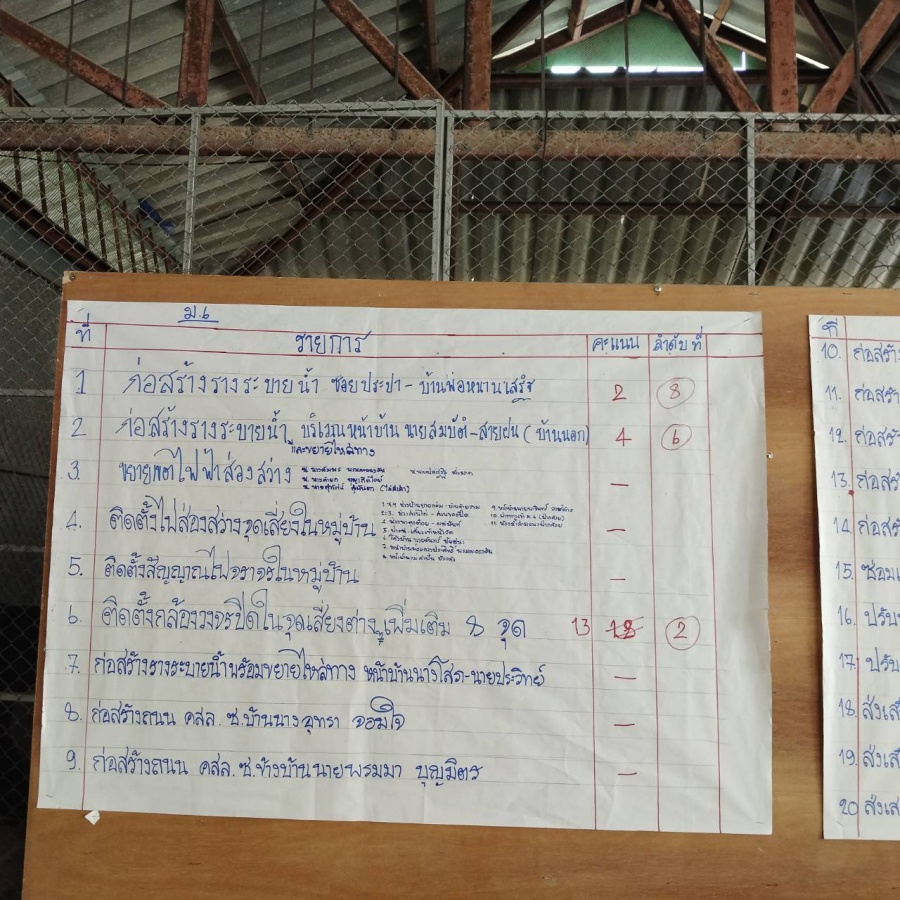 ม.6
ที่ รายการ คะแนน ลำดับที่
1 ก่อสร้างรางระบายน้ำ ซอยประปา - บ้านพ่อหนาน 2 8
2 ก่อสร้างรางระบายน้ำ บริเวณหน้าบ้าน นายสมบัติ - สายฝน (บ้านนอก) 4 6
และขยายไหล่ทาง
3. ขยายเขตไฟฟ้าส่องสว่าง —
4. ติดตั้งไฟส่องสว่างจุดเสี่ยงในหมู่บ้าน —
5. ติดตั้งสัญญาณไฟจราจรในหมู่บ้าน —
6. ติดตั้งกล้องวงจรปิดในจุดเสี่ยงต่างๆ เพิ่มเติม 8 จุด 13 2
7. ก่อสร้างรางระบายน้ำพร้อมขยายไหล่ทาง หน้าบ้านนางโสภา-นายประวิทย์ —
8. ก่อสร้างถนน คสล. ซ.บ้านนางอุทรา จอมใจ —
9. ก่อสร้างถนน คสล. ซ.ข้างบ้านนายพรมมา บุญมิตร —
ที่
10. ก่อสร้าง
11. ก่อสร้
12. ก่อสร้
13. ก่อส
14 ก่อสร้
15. ซ่อมแ
16. ปรับ
17. ปรับ
18. ส่งเส
19. ส่งเส
20 ส่งเส